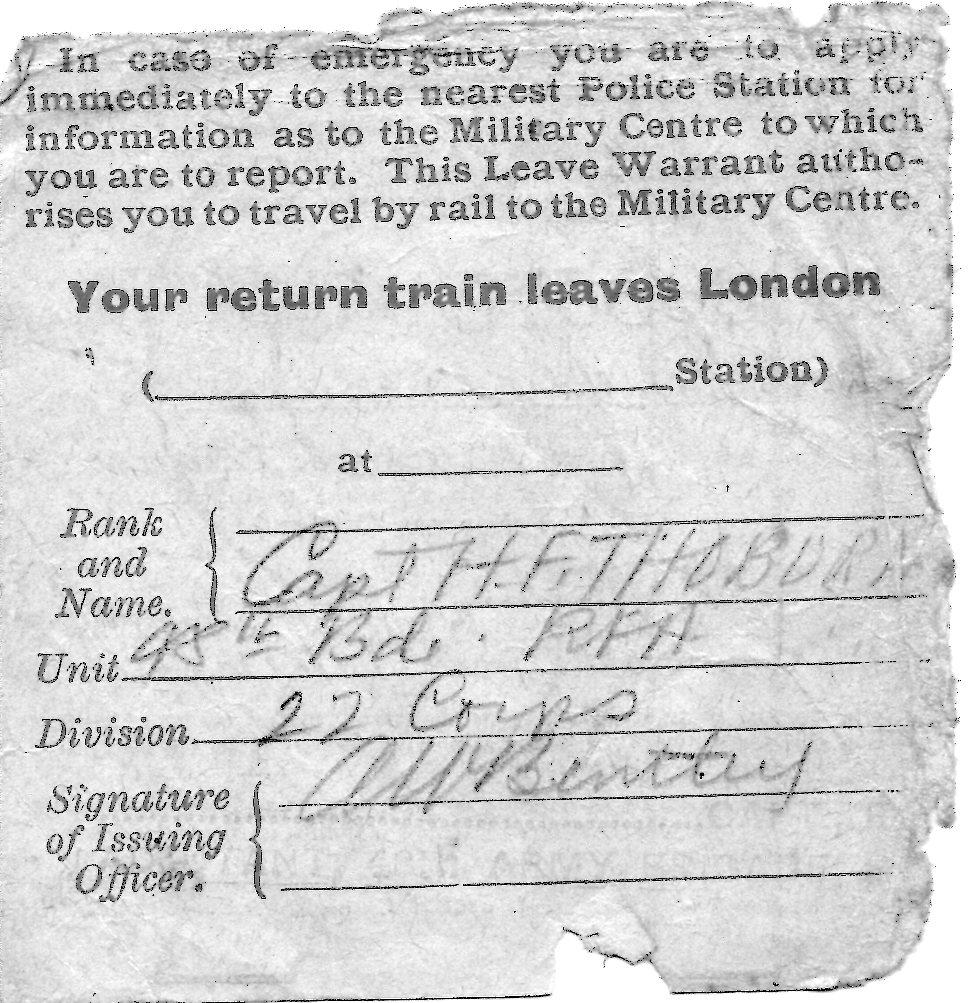 In case of emergency you are to apply
immediately to the nearest Police Station for
information as to the Military Centre to which
you are to report. This Leave Warrant autho-
rises you to travel by rail to the Military Centre.
Your return train leaves London
( Station)
at
Rank
and
Name.
Capt H. F. THOBURN
Unit 98th Bde. RFA
Division 27 Corps
Signature
of Issuing
Officer.
Bentley